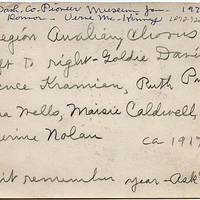 Wash. Co. Pioneer Museum Jan. 197
Donor - Verne McKinney
Legion Auxiliary Chorus
ft to right - Goldie Davi
ence Kramien, Ruth P
a Wells, Maisie Caldwell,
erine Nolan ca 1917
't remember year - Ask